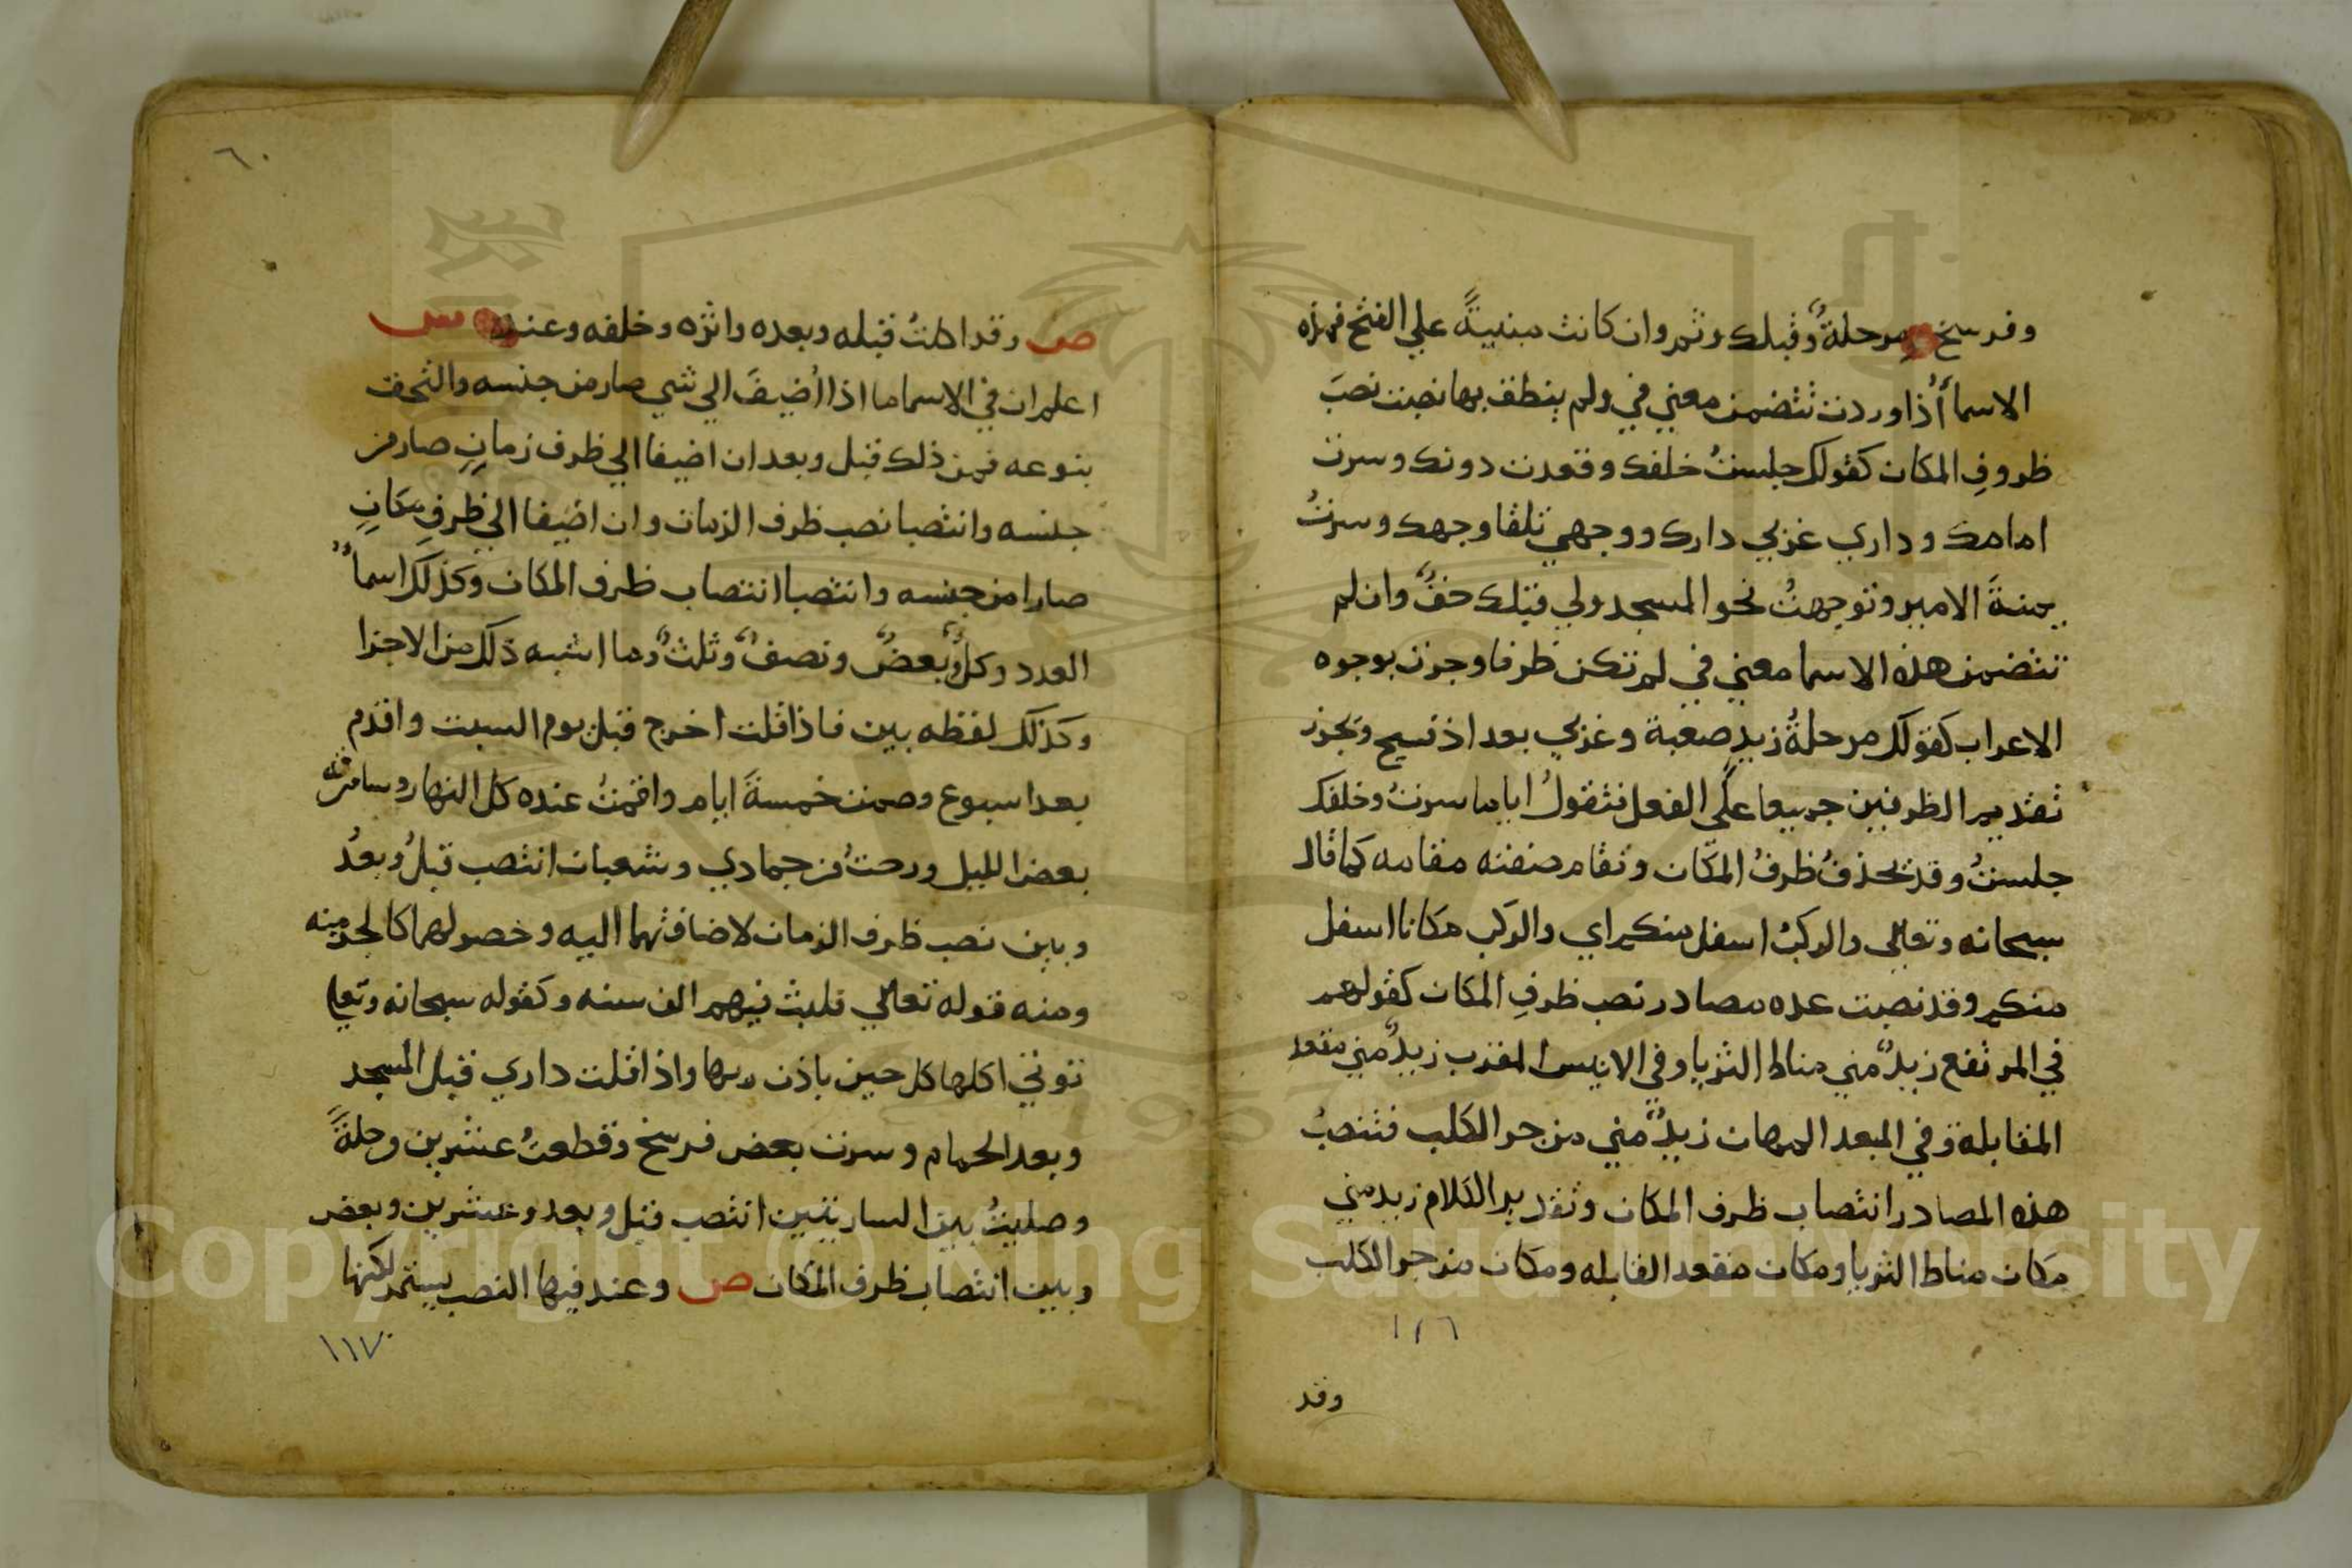 وفرسخ ومرحلةٌ وقبلك وثم وان كانت مبنيةً علي الفتح فهذه
الاسمأ أذا وردت تتضمن معني في ولم ينطق بها نصبت نصبَ
ظروفِ المكان كقولك جلستُ خلفك وقعدت دونك وسرت
امامك وداري غربي دارك ووجهي تلقا وجهك وسرتُ
يمنةَ الامير وتوجهتُ نحو المسجد ولي قبلك حقٌ وان لم
تتضمن هذه الاسما معني في لم تكن ظرفا وجرت بوجوه
الاعراب كقولك مرحلةُ زيدٍ صعبة وغربي بعد اذ فسيح ويجوز
تقديم الظرفين جميعا علَي الفعل فتقولُ اياما سرتُ وخلفك
جلستُ وقد تحذفُ ظرفُ المكان وتقام صفته مقامه كما قال
سبحانه وتعالي والركبُ اسفل منكم اي والركب مكانا اسفل
منكم وقد نصبت عده مصادر نصب ظرفِ المكان كقولهم
في المرتفع زيدٌ مني مناط الثريا وفي الانيس المقرب زيدٌ مني مقعد
المقابلة وفي المبعد المهان زيدٌ مني مزجر الكلب فتنصبُ
هذه المصادر انتصاب ظرف المكان وتقدير الكلام زيد مني
مكان مناط الثريا ومكان مقعد القابله ومكان مزجر الكلب
١١٦
وقد
٦٠
ص وقد اكلتُ قبله وبعده واثره وخلفه وعنده ش
اعلم ان في الاسما ما اذا أُضيفَ الي شي صار من جنسه والتحق
بنوعه فمن ذلك قبل وبعد ان اضيفا الي ظرف زمانٍ صار من
جنسه وانتصبا نصب ظرف الزمان وان اضيفا الي ظرفِ مكانٍ
صارا من جنسه وانتصبا انتصاب ظرف المكان وكذلك اسمأُ
العدد وكلٌ وبعضٌ ونصفٌ وثلثٌ وما اشبه ذلك من الاجزا
وكذلك لفظه بين فاذا قلت اخرج قبل يوم السبت واقدم
بعد اسبوع وصمت خمسةَ ايام واقمتُ عنده كل النهار وسامرته
بعض الليل ورحتُ بين جمادي وشعبان انتصب قبلُ وبعدُ
وبين نصب ظرف الزمان لاضافتهما اليه وحصولهما كالجز منه
ومنه قوله تعالي فلبث فيهم الف سنه وكقوله سبحانه وتعا
توتي اكلها كل حين باذن ربها واذا قلت داري قبل المسجد
وبعد الحمام وسرت بعض فرسخ وقطعتُ عشرين رحلةً
وصليتُ بين الساريتين انتصب قبل وبعد وعشرين وبعض
وبين انتصاب ظرف المكان ص وعند فيها النصب يستمر لكنها
١١٧
Copyright © King Saud University
1957